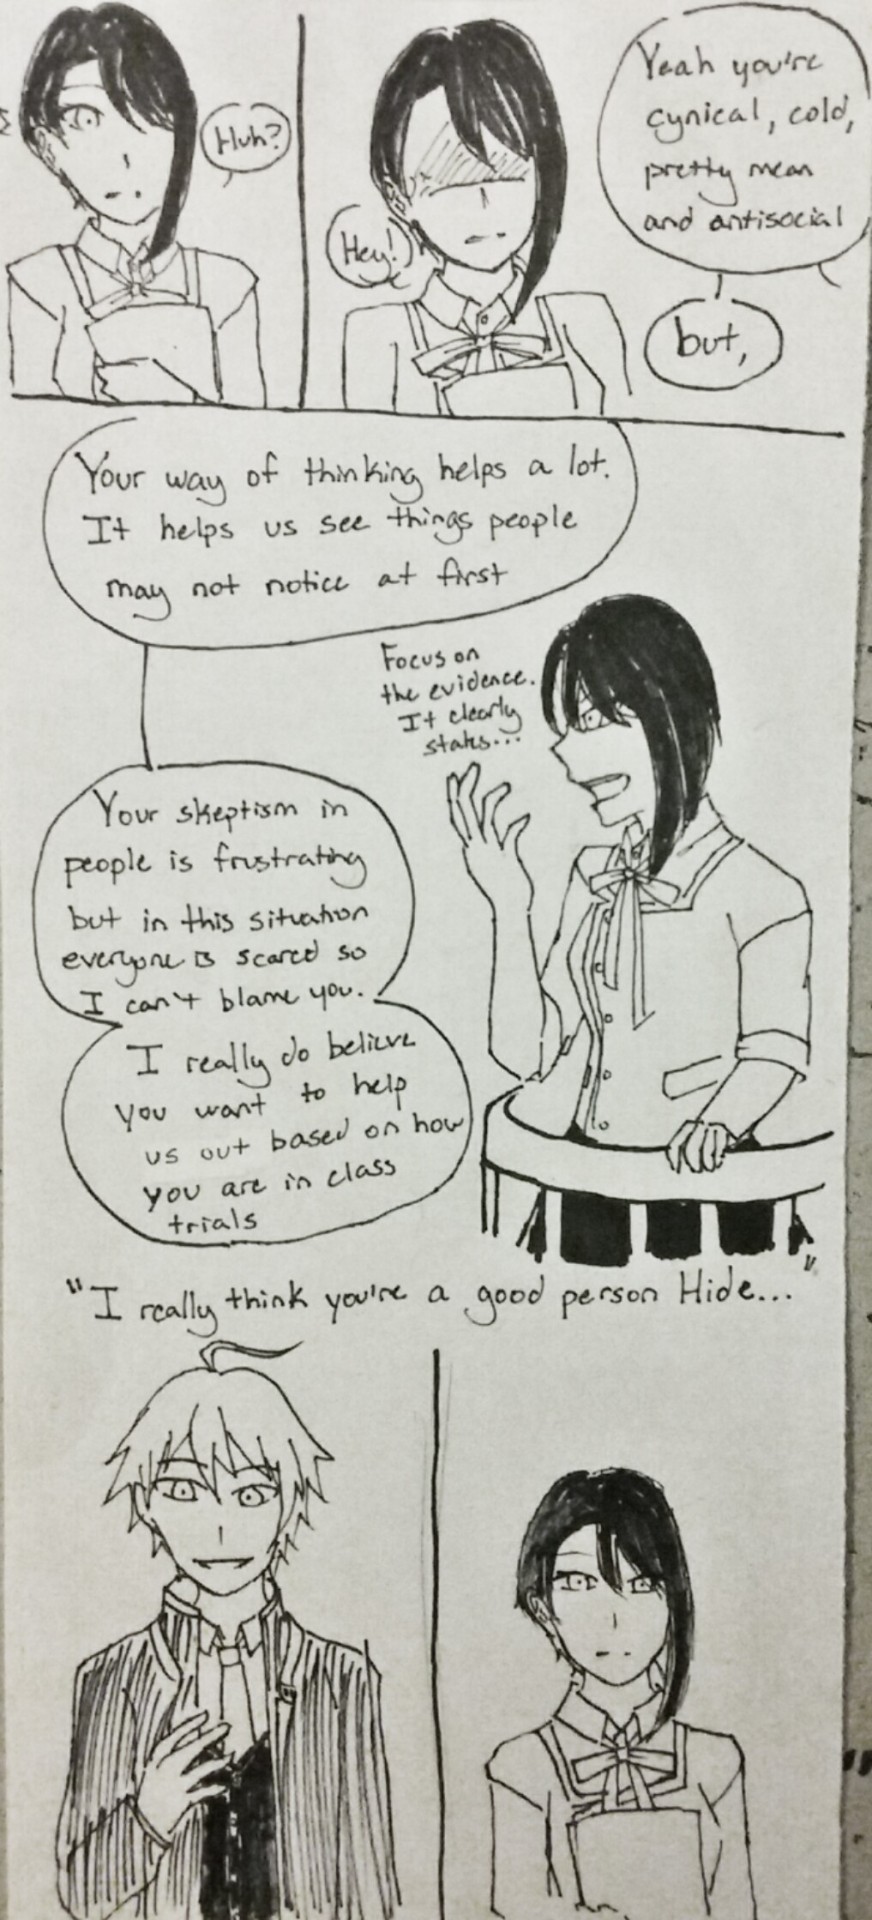 Huh?
Hey!
Yeah you're
cynical, cold,
pretty mean
and antisocial
but,
Your way of thinking helps a lot.
It helps us see things people
may not notice at first
Focus on
the evidence.
It clearly
states...
Your skeptism in
people is frustrating
but in this situation
everyone is scared so
I can't blame you.
I really do believe
you want to help
us out based on how
you are in class
trials
"I really think you're a good person Hide..."